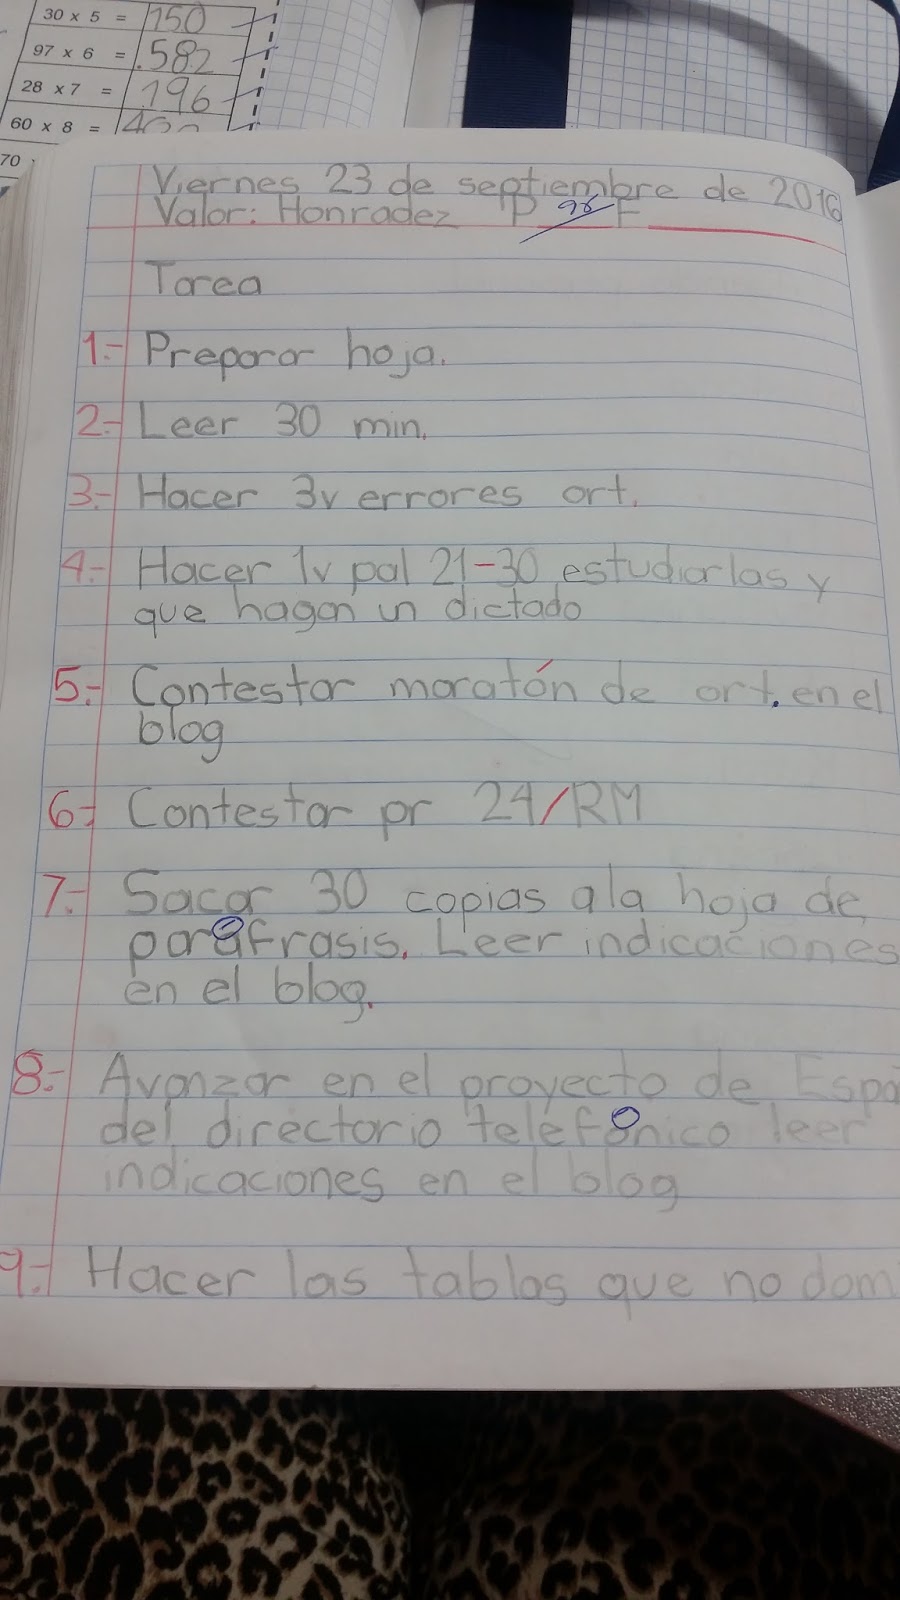 30 x 5 = 150
97 x 6 = 582
28 x 7 = 196
60 x 8 =
70
Viernes 23 de septiembre de 2016
Valor: Honradez P 96 F
Tarea
1.- Preparar hoja.
2.- Leer 30 min.
3.- Hacer 3v errores ort.
4.- Hacer 1v pal 21-30 estudiarlas y
que hagan un dictado
5.- Contestar maratón de ort. en el
blog
6.- Contestar pr 24/RM
7.- Sacar 30 copias a la hoja de
paráfrasis. Leer indicaciones
en el blog.
8.- Avanzar en el proyecto de Espa
del directorio telefónico leer
indicaciones en el blog
9.- Hacer las tablas que no dom